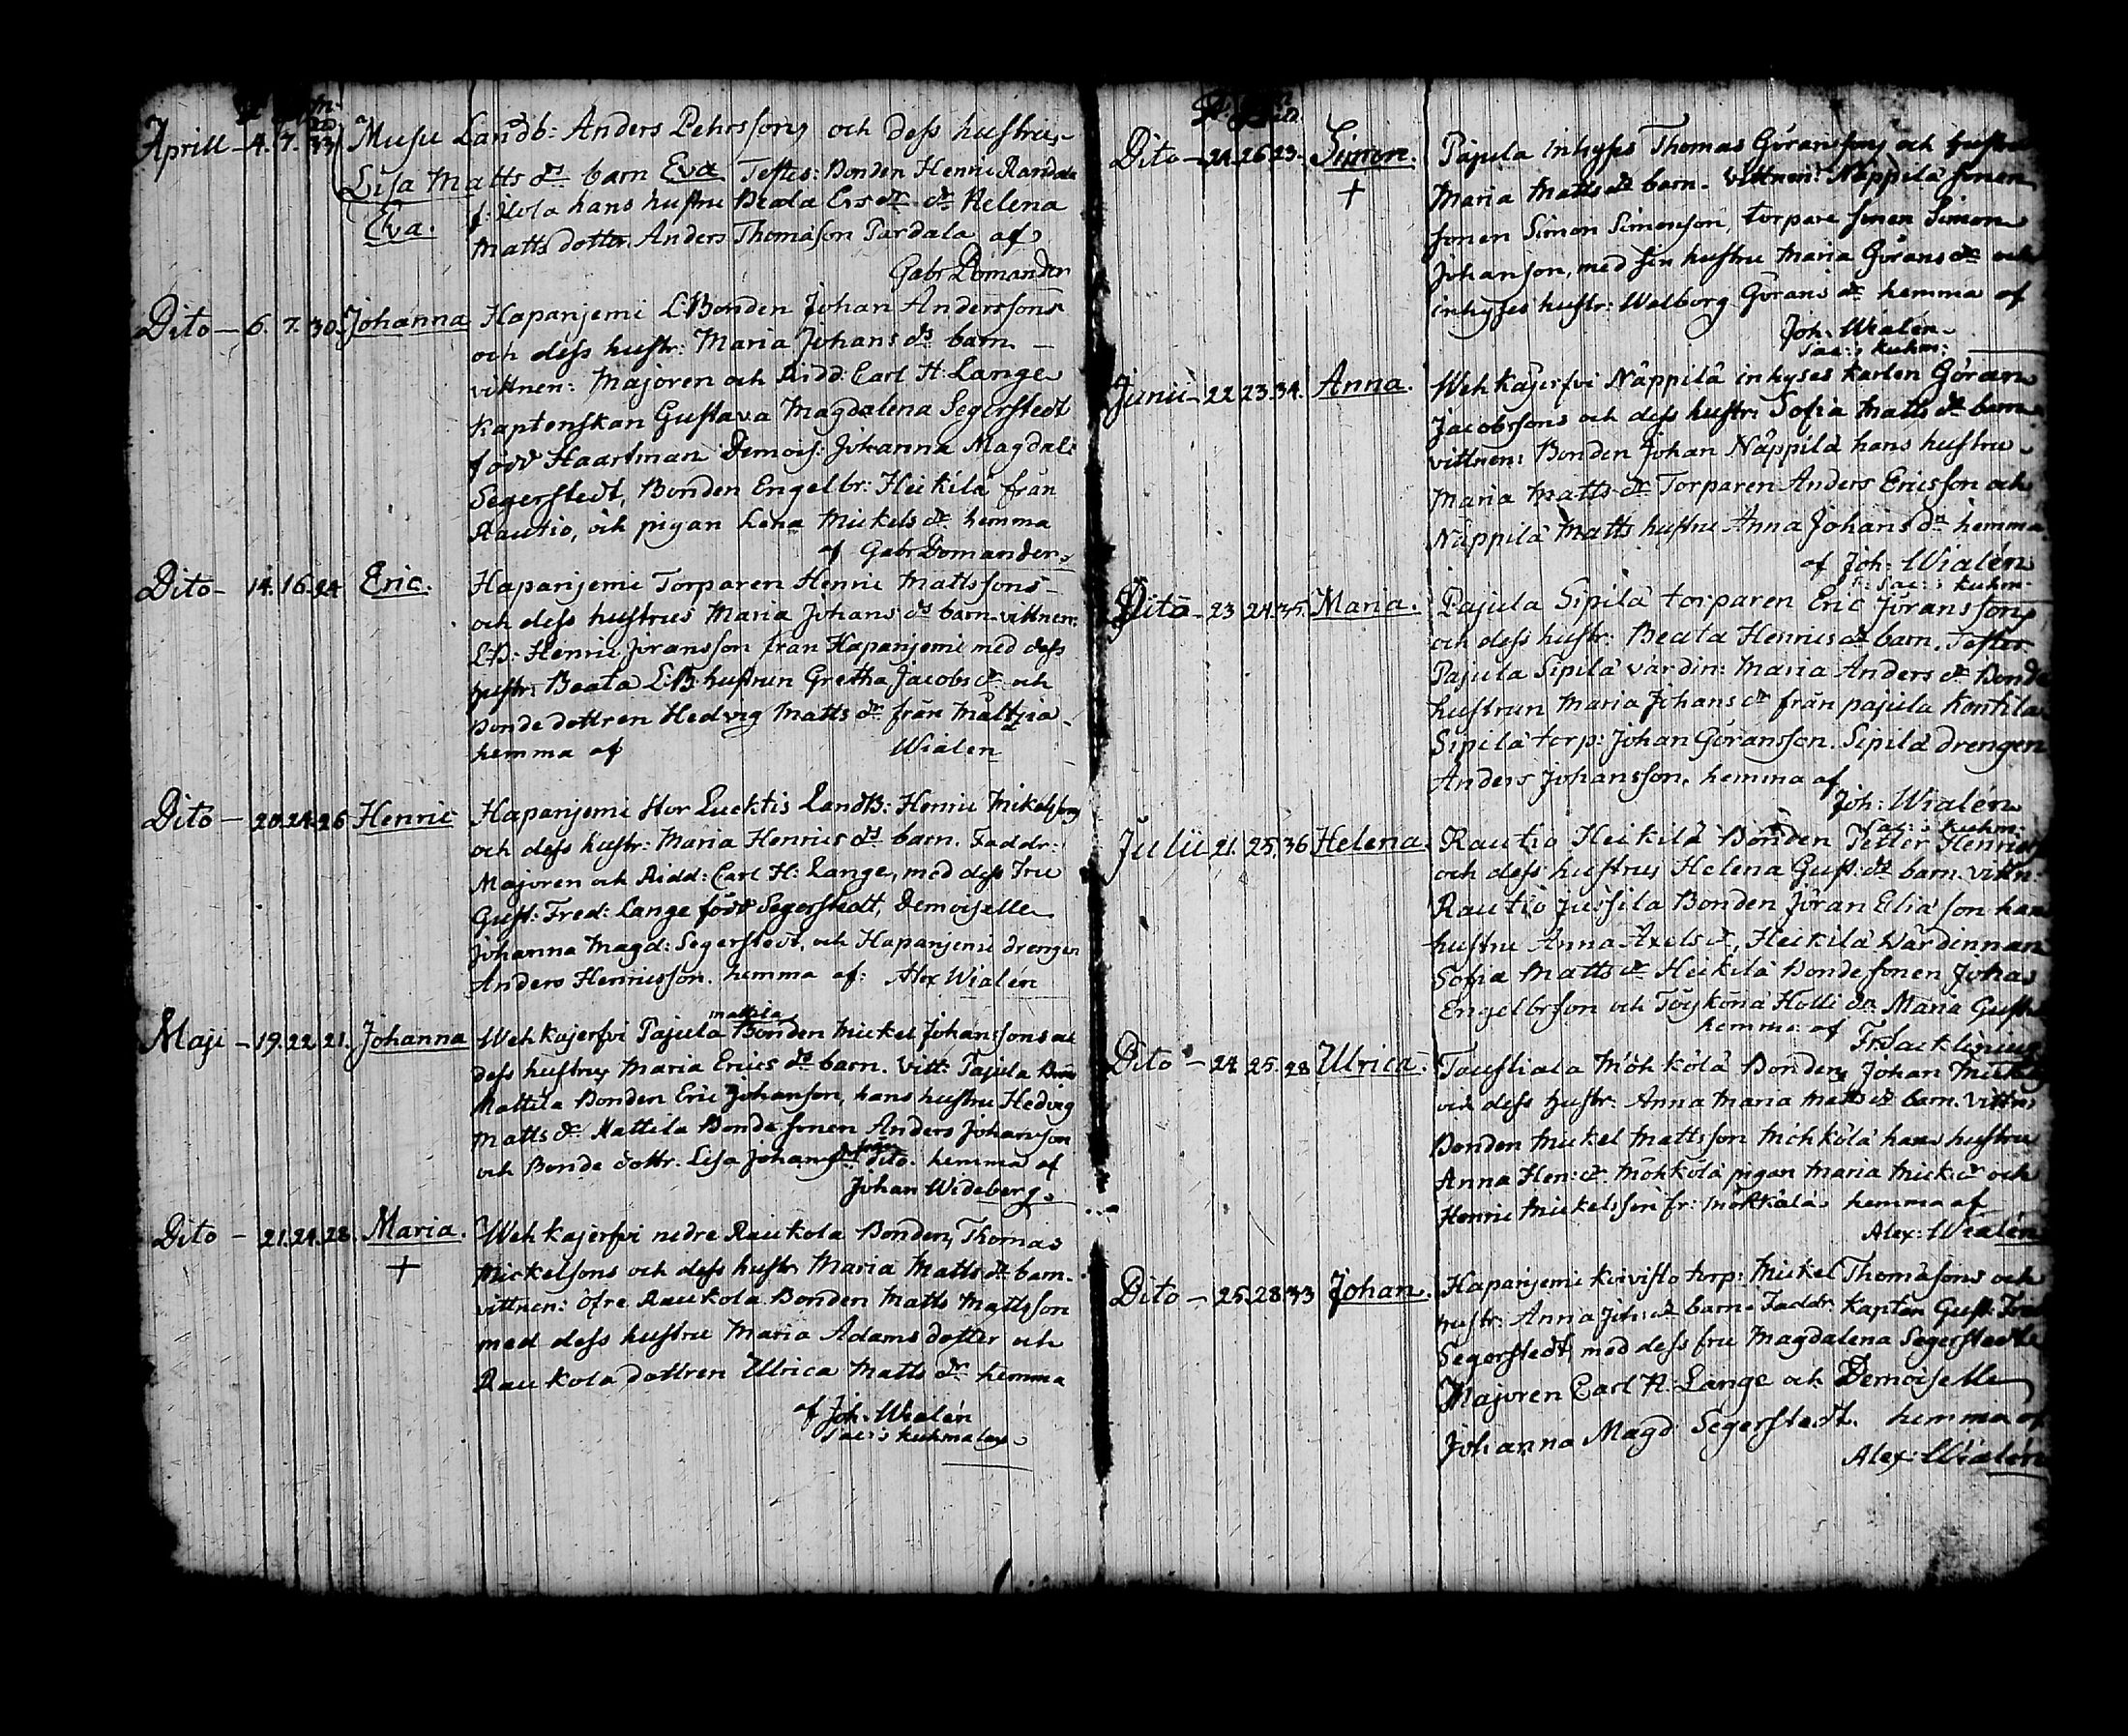 Aprill - 4. 7. 33 Musu Landb: Anders Pehrssons och dess hustrus
Lisa Matts dr barn Eva Testes: Bonden Henric Randala
Eva. f: Ilola hans hustru Beata Ers dr dr Helena
Matts dotter Anders Thomason Pardala af
Gabr Domander
Dito - 6. 7. 30. Johanna Hapanjemi L:Bonden Johan Anderssons
och dess hustr: Maria Johans ds barn
vittnen: Majoren och Ridd: Carl H: Lange
Kaptenskan Gustava Magdalena Segerstedt
född Haartman Demois: Johanna Magdal:
Segerstedt, Bonden Engelbr: Heikilä från
Rautio, och pigan Lena Mickels dr hemma
af Gabr Domander
Dito - 14. 16. 24 Eric. Hapanjemi Torparen Henric Mattssons
och dess hustrus Maria Johans ds barn. vittnen:
LB: Henric Jöransson från Hapanjemi med dess
hustr: Beata L:B hustrun Gretha Jacobs dr och
Bonde dottren Hedvig Matts dr från Maltzia
hemma af Wialen
Dito - 20. 24. 26 Henric Hapanjemi Stor Lucktis LandB: Henric Mikelssons
och dess hustr: Maria Henrics ds barn. Faddr:
Majoren och Ridd: Carl H: Lange, med dess Fru
Gust: Fred: Lange född Segerstedt, Demoiselle
Johanna Magd: Segerstedt, och Hapanjemi drengen
Anders Henricsson. hemma af: Alex Wialén
Maji - 19. 22. 21. Johanna Wehkajerfvi Pajula Mattila Bonden Mickel Johanssons och
dess hustrus Maria Erics ds barn. Vitt: Pajula
Mattila Bonden Eric Johanson, hans hustru Hedvig
Matts dr Mattila Bonde sonen Anders Johanson
och Bonde dottr. Lisa Johans dr från dito. hemma af
Johan Wideberg.
Dito - 21. 24. 28. Maria. Wehkajerfvi nedre Raukola Bonden Thomas
+ Mickelsons och dess hustr Maria Matts dr barn.
vittnen: öfre Raukola Bonden Matts Mattsson
med dess hustru Maria Adams dotter och
Raukola dottren Ulrica Matts dr hemma
af Joh. Wialén
Sac: i Kuhmalax
Dito - 24. 26. 23. Simon. Pajula inhyses Thomas Göranssons och hustru
+ Maria Matts ds barn. vittnen: Näppilä sonen
sonen Simon Simonson, torpare sonen Simon
Johanson, med sin hustru Maria Görans dr och
inhyses hustr: Walborg Görans dr hemma af
Joh. Wialén
Sac: i Kuhm:
Junii - 22 23. 34. Anna. Wehkajerfvi Näppilä inhyses karlen Göran
Jacobssons och dess hustr: Sofia Matts ds barn
vittnen: Bonden Johan Näppilä hans hustru
Maria Matts dr Torparen Anders Ericsson och
Näppilä Matts hustru Anna Johans dr hemma
af Joh. Wialén
Sac: i Kuhm
Dito - 23 24. 35. Maria. Pajula Sipilä torparen Eric Jöranssons
och dess hustr: Beata Henrics ds barn. Testes
Pajula Sipilä värdin: Maria Anders dr Bonde
hustrun Maria Johans dr från pajula Konttila
Sipilä torp: Johan Göransson. Sipilä drengen
Anders Johansson. hemma af
Joh: Wialén
Sac: i Kuhm:
Julii 21. 25. 36 Helena. Rautio Heikilä Bonden Petter Henrics
och dess hustrus Helena Gust: ds barn. vittn:
Rautio Jussila Bonden Jöran Elia son hans
hustru Anna Axels dr, Heikilä Wärdinnan
Sofia Matts dr Heikilä Bonde sonen Johan
Engelbrson och Töykönä Holli dn Maria Gust
hemma af
Dito - 24. 25. 28 Ulrica. Taustiala Möhkölä Bonden Johan Mickels
och dess hustr. Anna Maria Matts ds barn. vittn:
Bonden Mickel Mattsson Möhkölä hans hustru
Anna Hen: dr. Möhkölä pigan Maria Mick: dr och
Henric Mickelsson fr: Möhkölä hemma af
Alex: Wialén
Dito - 25. 28 33 Johan. Hapanjemi Kivisto torp: Mickel Thomasons och
hustr: Anna Joh: ds barn. Faddr Kapten Gust: Fred
Segerstedt, med dess fru Magdalena Segerstedt
Majoren Carl H: Lange och Demoiselle
Johanna Magd Segerstedt. hemma af
Alex: Wialén